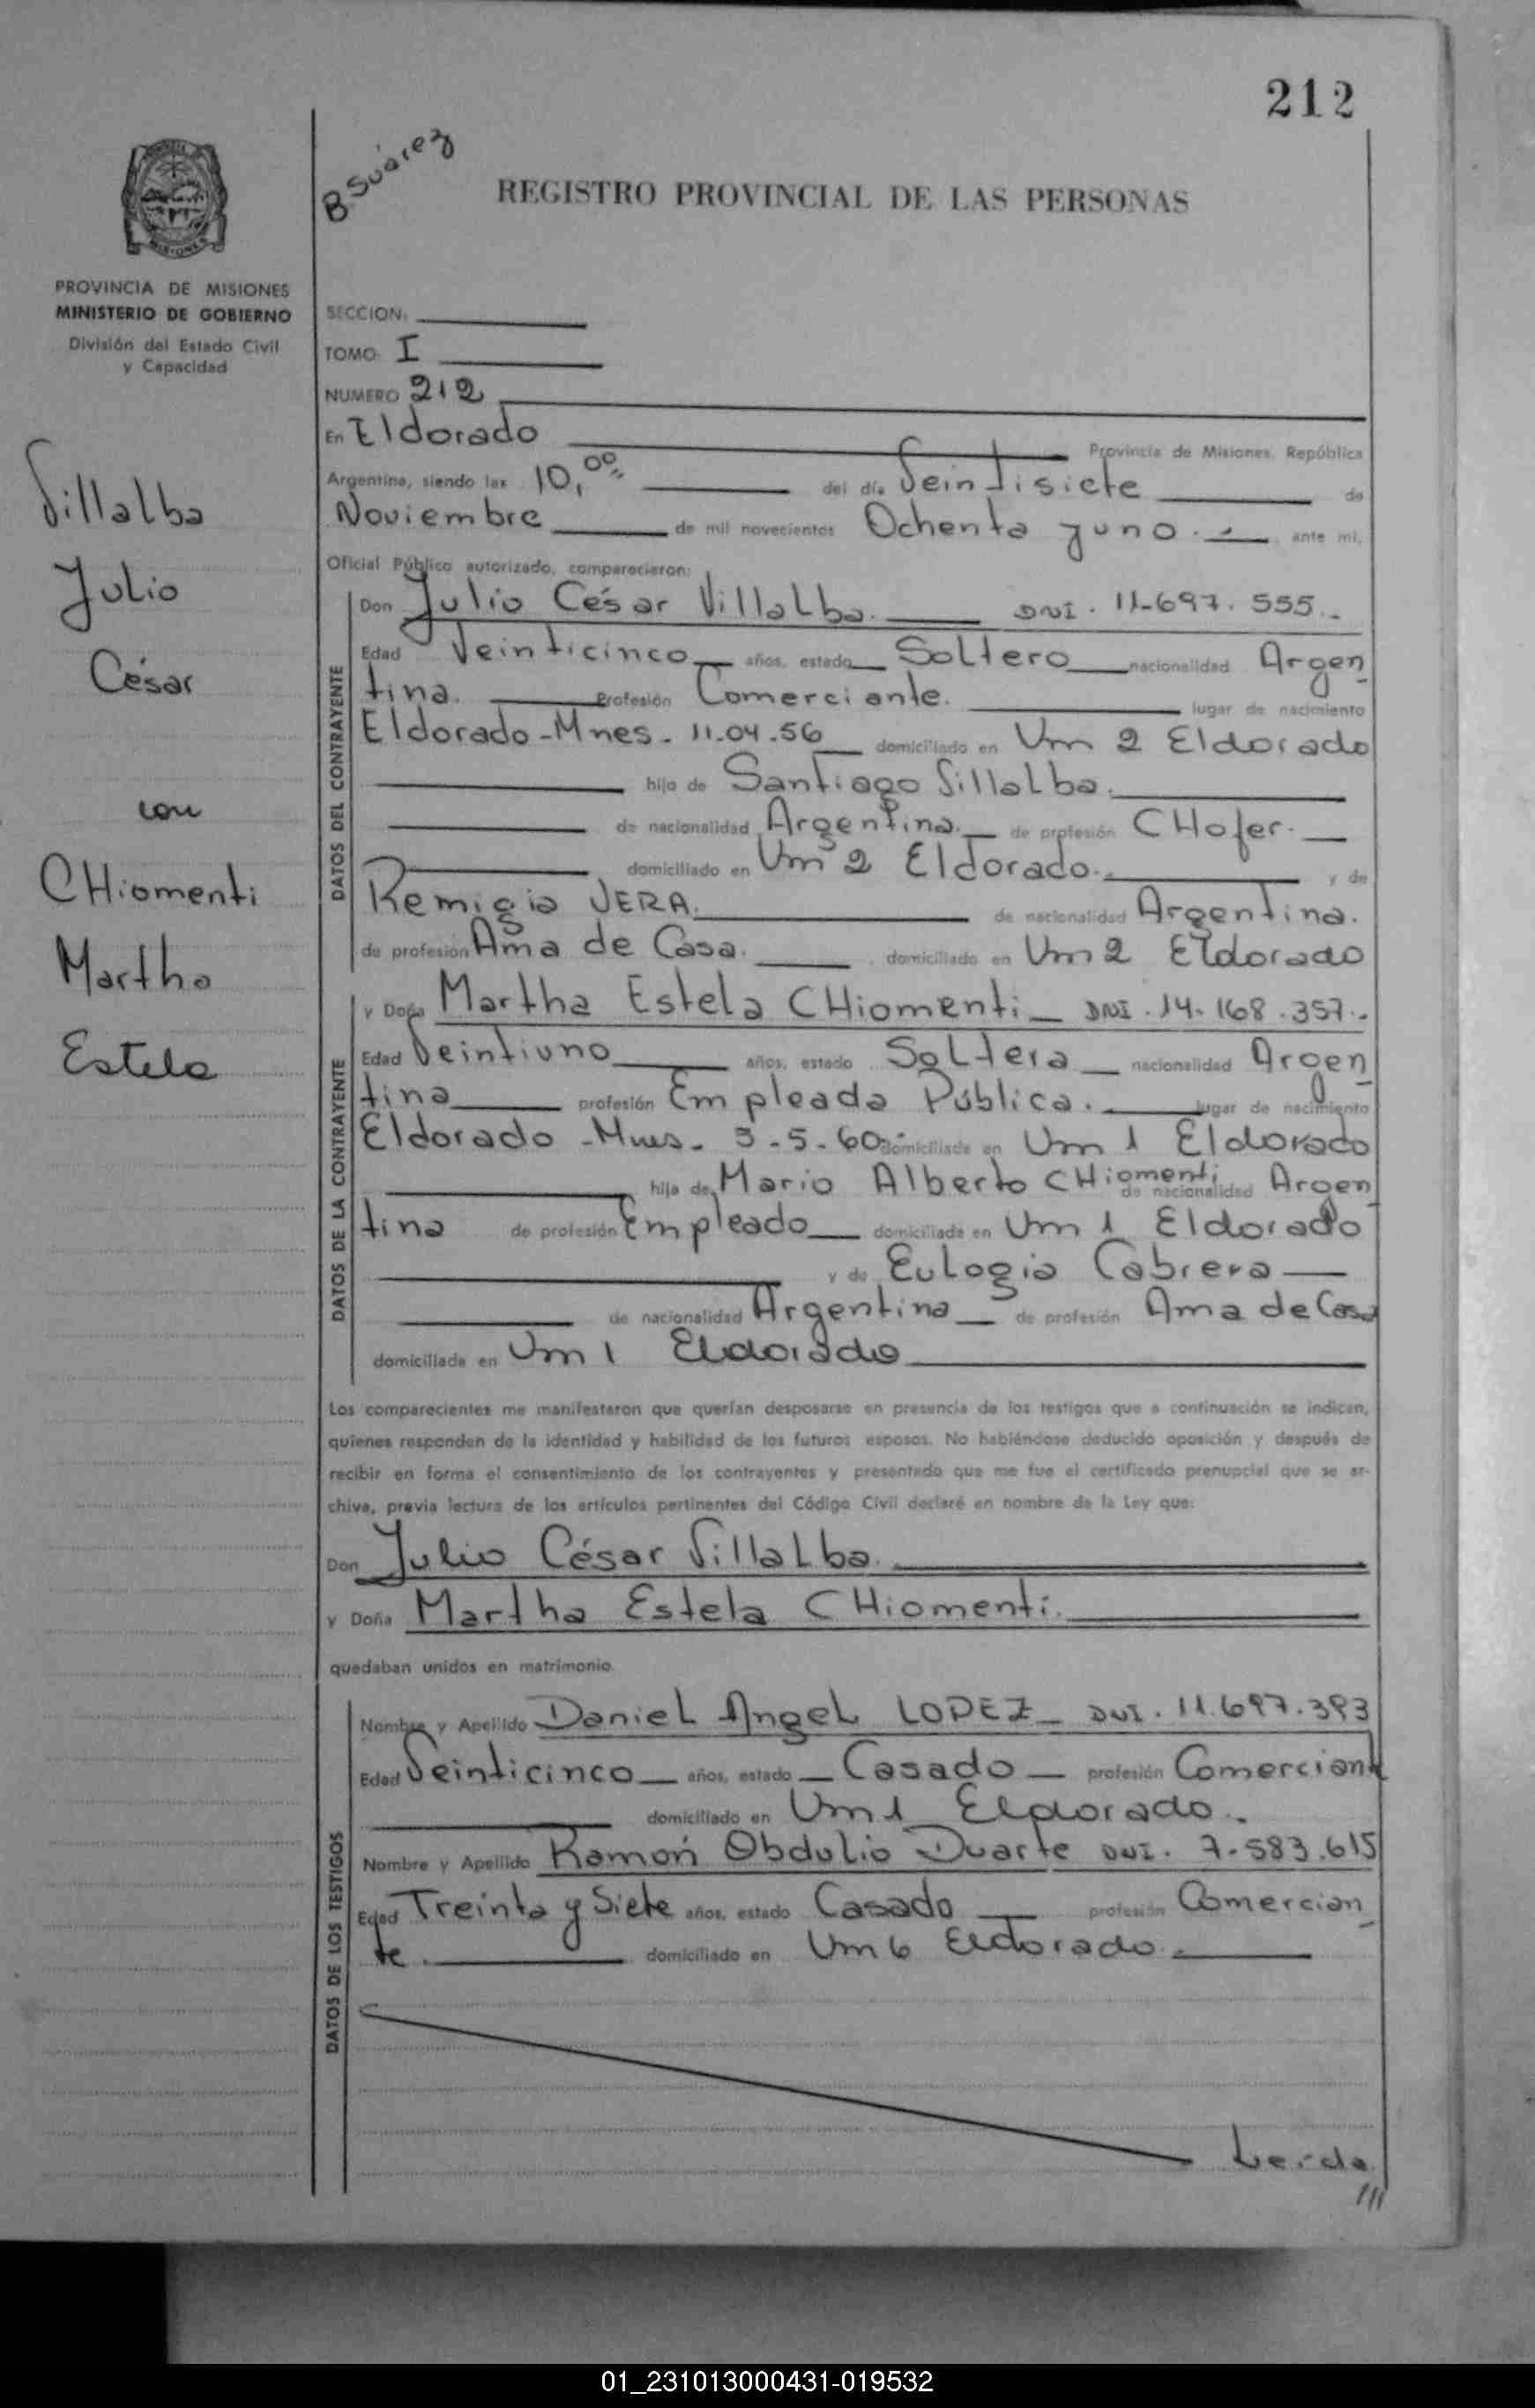 212
B. Suárez
REGISTRO PROVINCIAL DE LAS PERSONAS
MISIONES
PROVINCIA DE MISIONES
MINISTERIO DE GOBIERNO
División del Estado Civil
y Capacidad
Villalba
Julio
César
con
CHiomenti
Martha
Estela
SECCION:
TOMO I
NUMERO 212
En Eldorado Provincia de Misiones, República
Argentina, siendo las 10,00 del día Veintisiete de
Noviembre de mil novecientos Ochenta y uno.- ante mi,
Oficial Público autorizado, comparecieron:
DATOS DEL CONTRAYENTE
Don Julio César Villalba. DNI. 11.697.555.-
Edad Veinticinco años, estado Soltero nacionalidad Argen
tina. Profesión Comerciante. lugar de nacimiento
Eldorado-Mnes. 11.04.56 domiciliado en Vm 2 Eldorado
hijo de Santiago Villalba.
de nacionalidad Argentina. de profesión CHofer.
domiciliado en Vm 2 Eldorado. y de
Remigia VERA. de nacionalidad Argentina.
de profesión Ama de Casa. domiciliado en Vm 2 Eldorado
DATOS DE LA CONTRAYENTE
y Doña Martha Estela CHiomenti DNI. 14.168.357.-
Edad Veintiuno años, estado Soltera nacionalidad Argen
tina profesión Empleada Pública. lugar de nacimiento
Eldorado-Mnes- 3-5-60 domiciliada en Vm 1 Eldorado
hija de Mario Alberto CHiomenti de nacionalidad Argen
tina de profesión Empleado domiciliada en Vm 1 Eldorado
y de Eulogia Cabrera
de nacionalidad Argentina de profesión Ama de Casa
domiciliada en Vm 1 Eldorado
Los comparecientes me manifestaron que querían desposarse en presencia de los testigos que a continuación se indican,
quienes responden de la identidad y habilidad de los futuros esposos. No habiéndose deducido oposición y después de
recibir en forma el consentimiento de los contrayentes y presentado que me fue el certificado prenupcial que se ar-
chiva, previa lectura de los artículos pertinentes del Código Civil declaré en nombre de la Ley que:
Don Julio César Villalba.
y Doña Martha Estela CHiomenti.
quedaban unidos en matrimonio.
DATOS DE LOS TESTIGOS
Nombre y Apellido Daniel Angel LOPEZ DNI. 11.697.393
Edad Veinticinco años, estado Casado profesión Comerciante
domiciliado en Vm 1 Eldorado.-
Nombre y Apellido Ramón Obdulio Duarte DNI. 7.583.615
Edad Treinta y Siete años, estado Casado profesión Comercian
te. domiciliado en Vm 6 Eldorado.
Leida
///
01_231013000431-019532